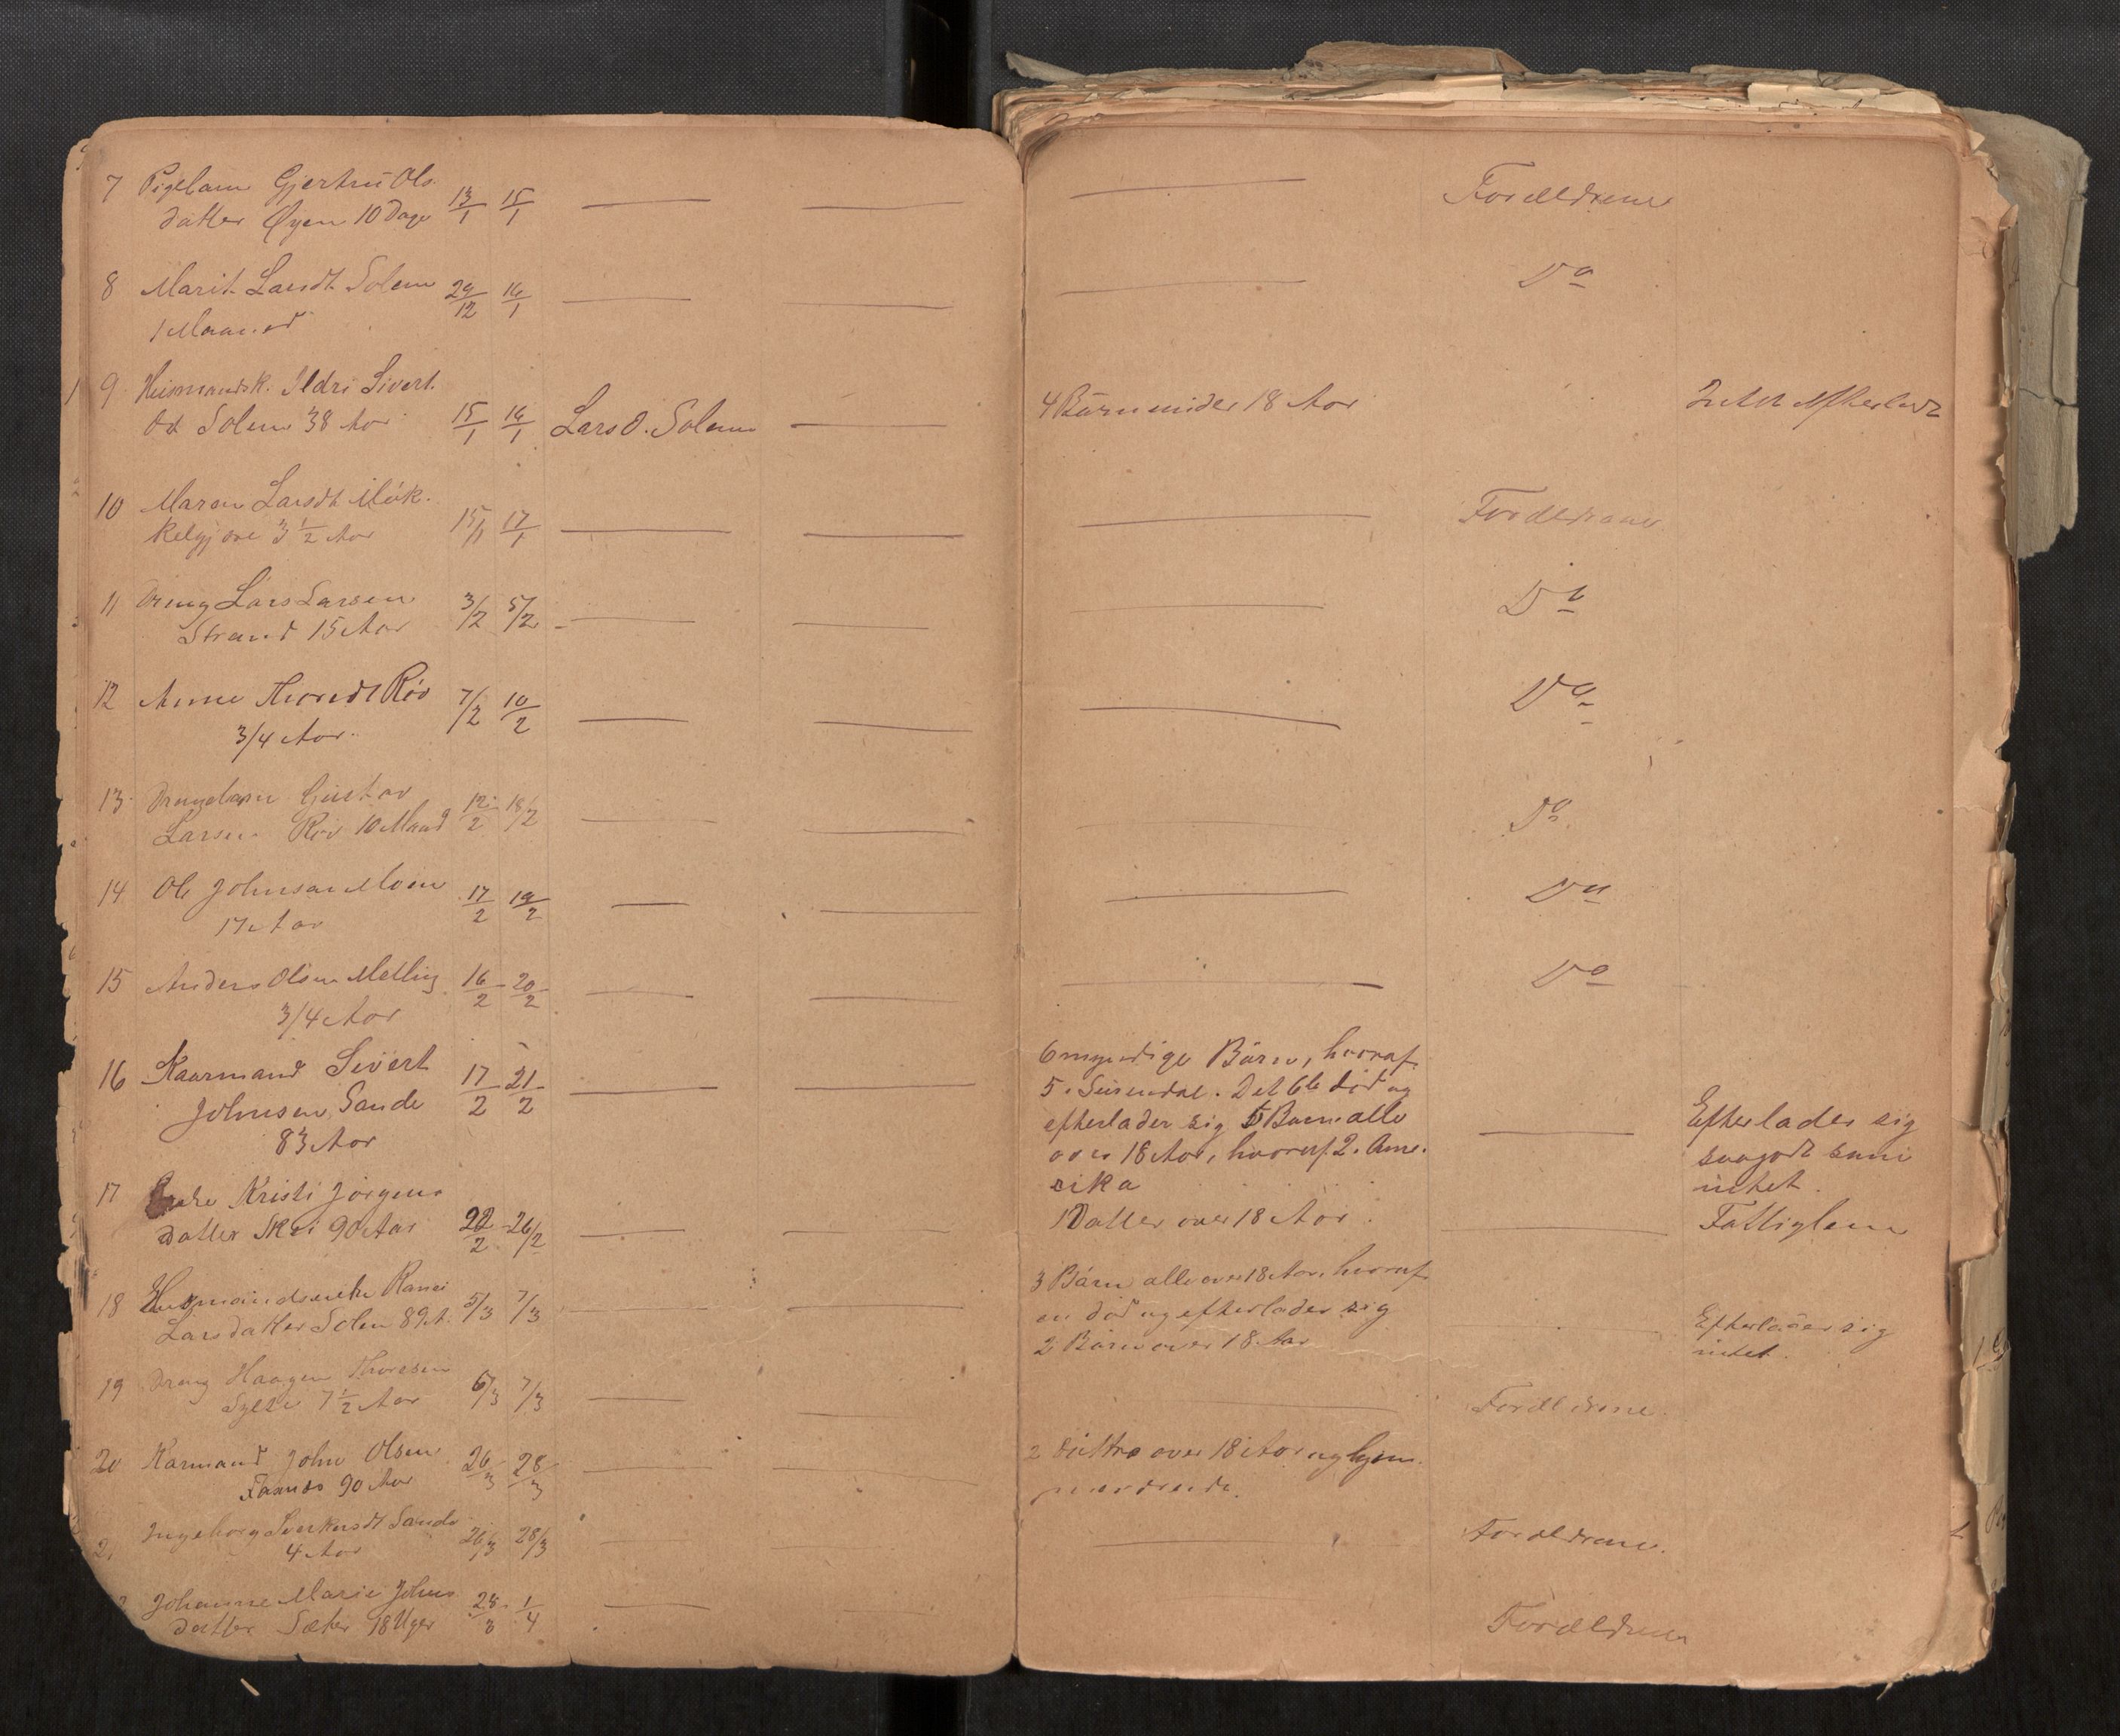 7 Pigebarn Gjertru Ols
datter Øyen 10 Dage 13/1 15/1 Forældrene
8 Marit Larsdt. Solem 29/12 16/1 Do
1 Maaned
9 Husmandsk. Ildri Sivert
dd Solem 38 Aar 15/1 16/1 Lars O. Solem 4 Børn under 18 Aar Intet efterladt
10 Maren Larsdt Møk-
kelgjøre 3 1/2 Aar 15/1 17/1 Forældrene
11 Dreng Lars Larsen 3/2 5/2 Do
Strand 15 Aar
12 Anne Thoredt Røv 7/2 10/2 Do
3/4 Aar.
13 Drengebarn Gustav 12/2 18/2 Do
Larsen Røv 10 Maand
14 Ole Johnsen Moen 17/2 19/2 Do
17 Aar
15 Anders Olsen Melling 16/2 20/2 Do
3/4 Aar
16 Kaarmand Sivert 17/2 21/2
Johnsen Sande
83 Aar
6 myndige Børn, hvoraf
5 i Surendal. Det 6te død og
efterlader sig 5 Barn alle
over 18 Aar, hvoraf 2 i Ame-
rika
Efterlader sig
saagodt som
intet.
17 Kristi Jørgens
datter Skei 90 Aar 22/2 26/2 1 Datter over 18 Aar. Fattiglem
18 Husmandsenke Ranei
Larsdatter Solem 89 A. 5/3 7/3
3 Børn alle over 18 Aar, hvoraf
en død og efterlader sig
2 Børn over 18 Aar
Efterlader sig
intet.
19 Dreng Haagen Thoresen
Sylte 7 1/2 Aar 6/3 7/3 Forældrene.
20 Karmand John Olsen 26/3 28/3
Faxnes 90 Aar
2 Døttre over 18 Aar og hjem-
Ingeborg Sverkersdt Sande 26/3 28/3 Forældrene.
4 Aar
Johanne Marie Johns
datter Sæter 18 Uger 28/3 1/4 Forældrene